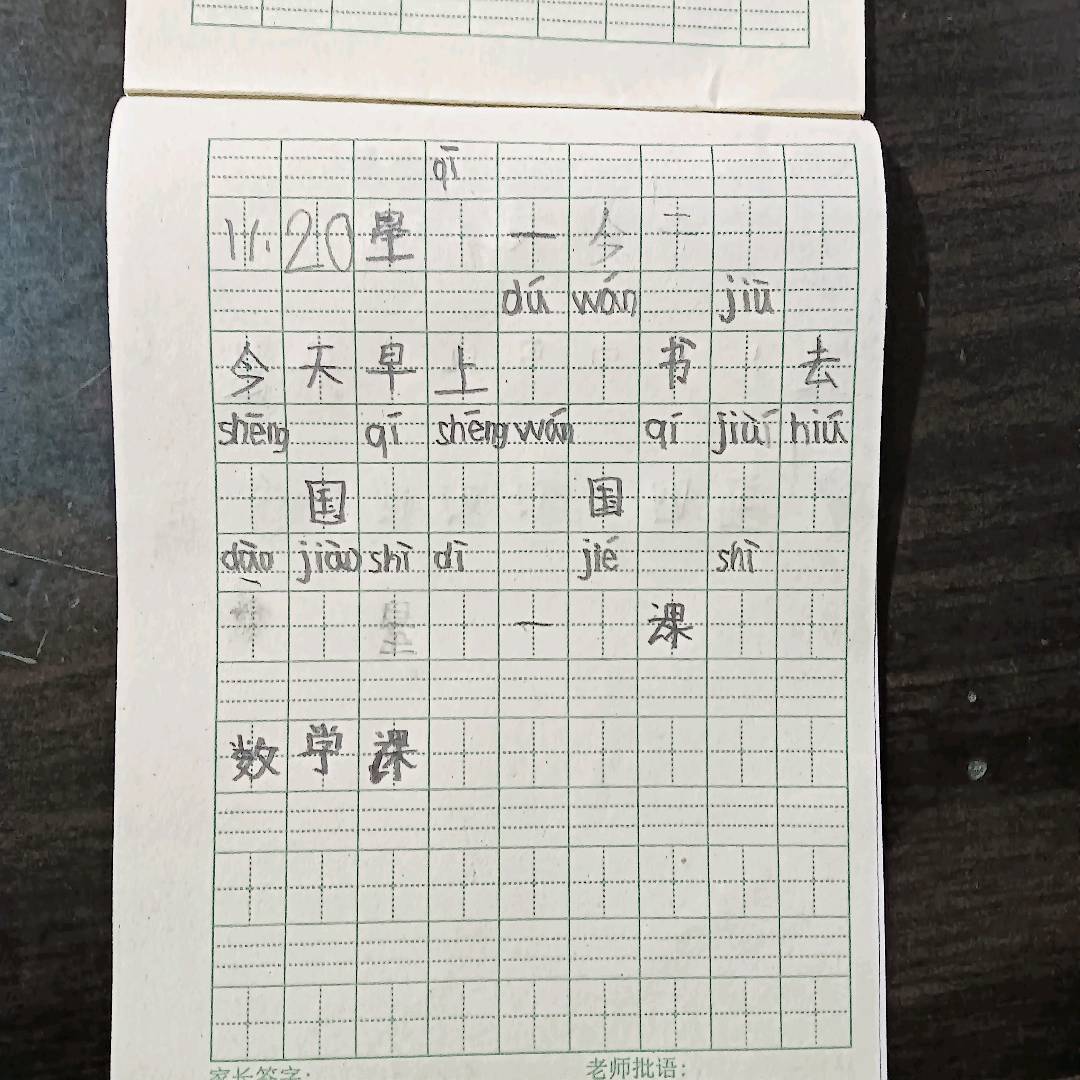 qī
11.20 星 一
dú wán jiū
今天早上 书 去
shēng qí shēng wán qí jiù hiú
国 国
dāo jiào shì dì jié shì
一 课
数学课
家长签字: 老师批语: